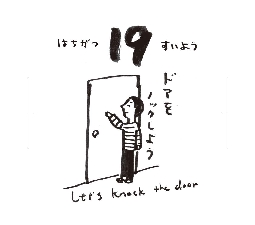 はちがつ 19 すいよう
ドアを
ノックしよう
Let's knock the door